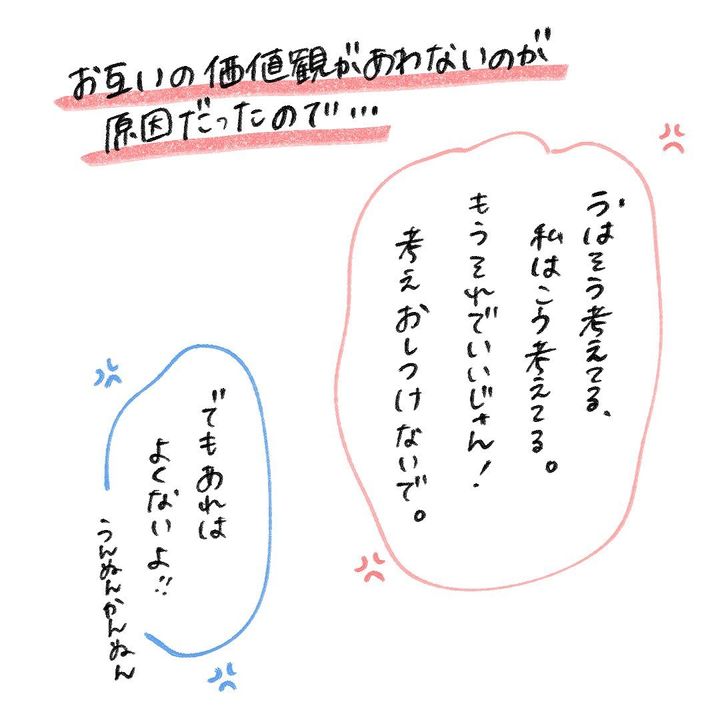 お互いの価値観があわないのが
原因だったので…
うはそう考えてる、
私はこう考えてる。
もうそれでいいじゃん!
考えおしつけないで。
でもあれは
よくないよ!!
うんぬんかんぬん